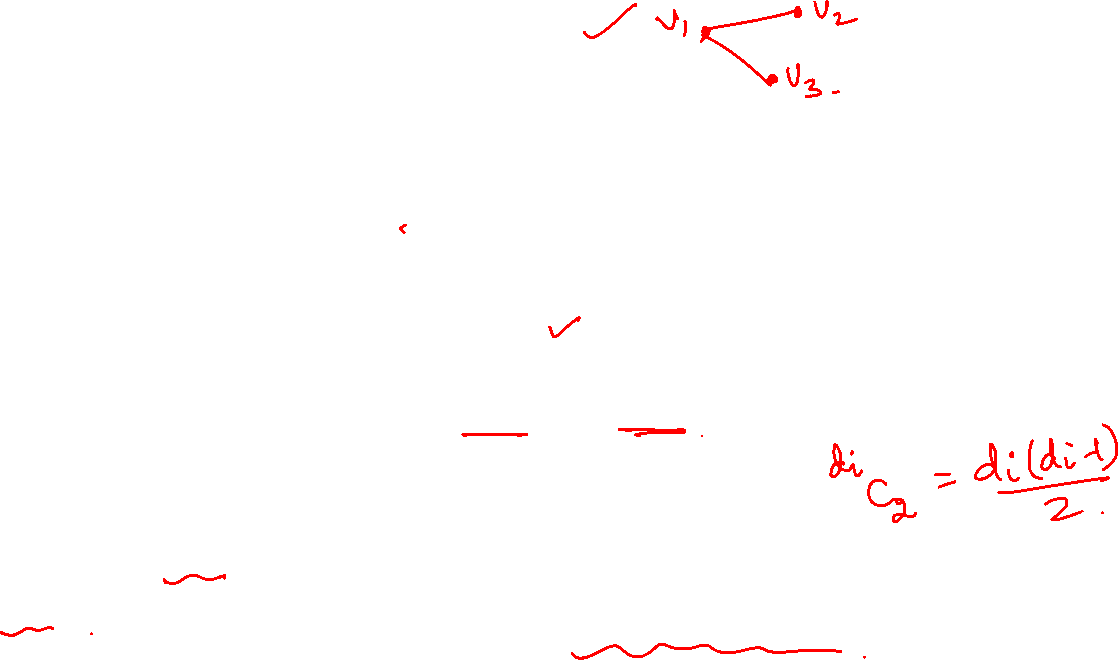 v1 v2
v3.
di C2 = di(di-1)/2.